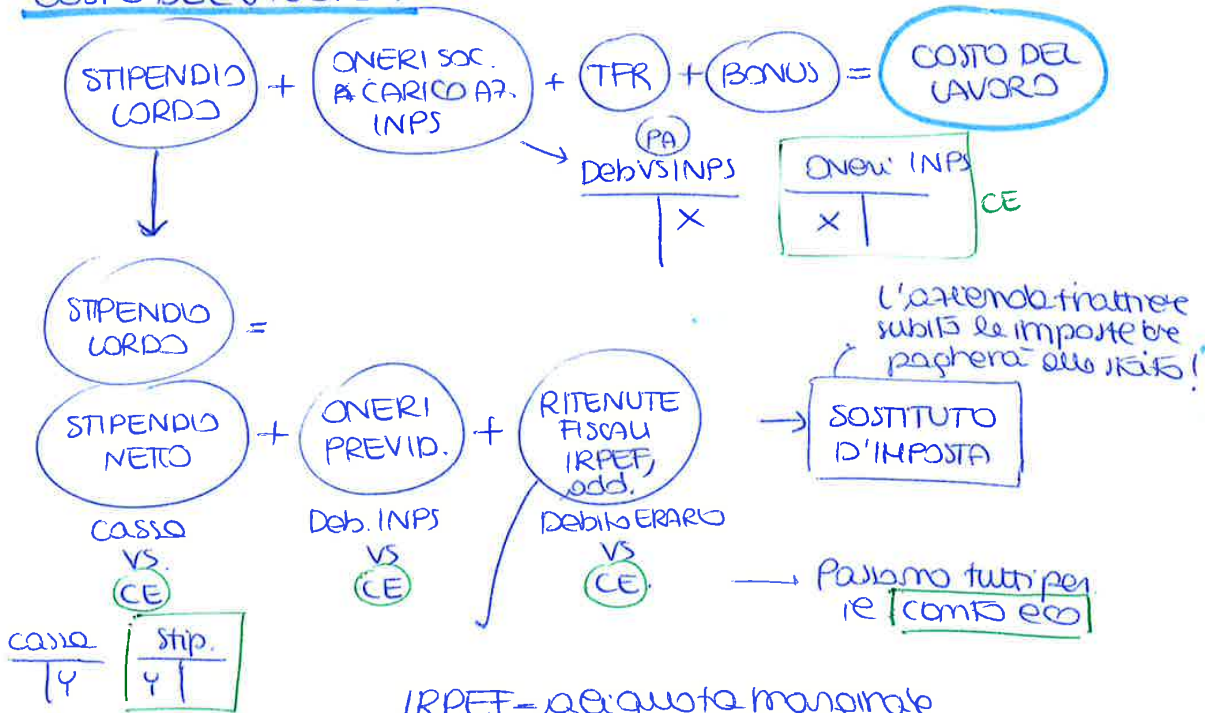 COSTO DEL
STIPENDIO LORDO + ONERI SOC. A CARICO AZ. INPS + TFR + BONUS = COSTO DEL LAVORO
PA
Deb VS INPS
X
Oneri INPS
X
CE
STIPENDIO LORDO =
STIPENDIO NETTO + ONERI PREVID. + RITENUTE FISCALI IRPEF, add.
SOSTITUTO D'IMPOSTA
L'azienda trattiene
subito le imposte e
pagherà allo stato!
cassa
VS.
CE
Deb. INPS
VS
CE
Debito ERARIO
VS
CE.
Passano tutti per
conto eco
cassa
Y
Stip.
Y
IRPEF = aliquota marginale